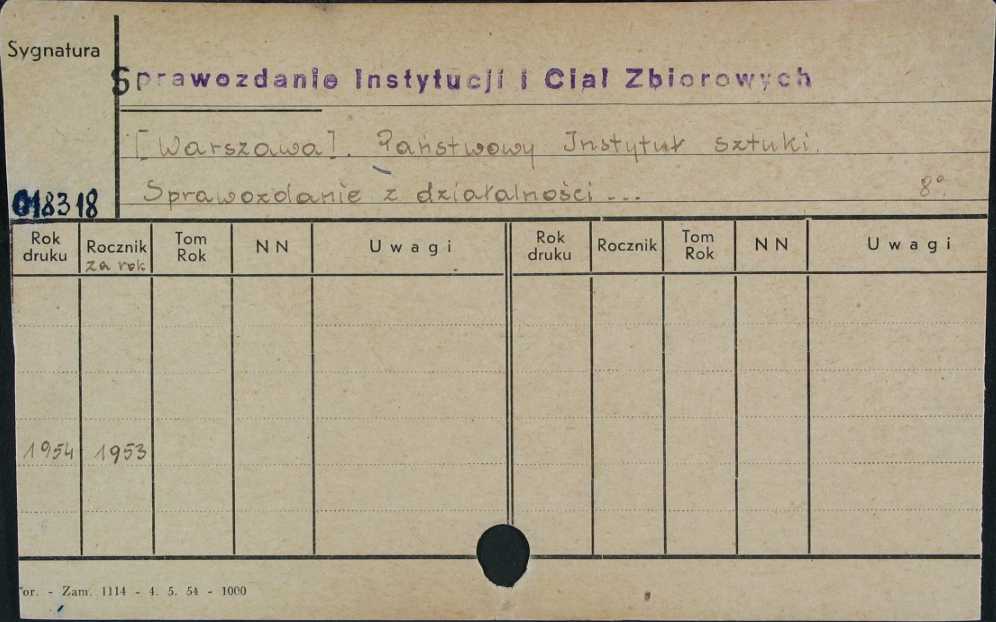 Sygnatura
Sprawozdanie Instytucji i Ciał Zbiorowych
[Warszawa]. Państwowy Instytut sztuki.
Sprawozdanie z działalności ... 8°.
018318
Rok druku Rocznik za rok Tom Rok NN Uwagi Rok druku Rocznik Tom Rok NN Uwagi
1954 1953
or. - Zam. 1114 - 4. 5. 54 - 1000